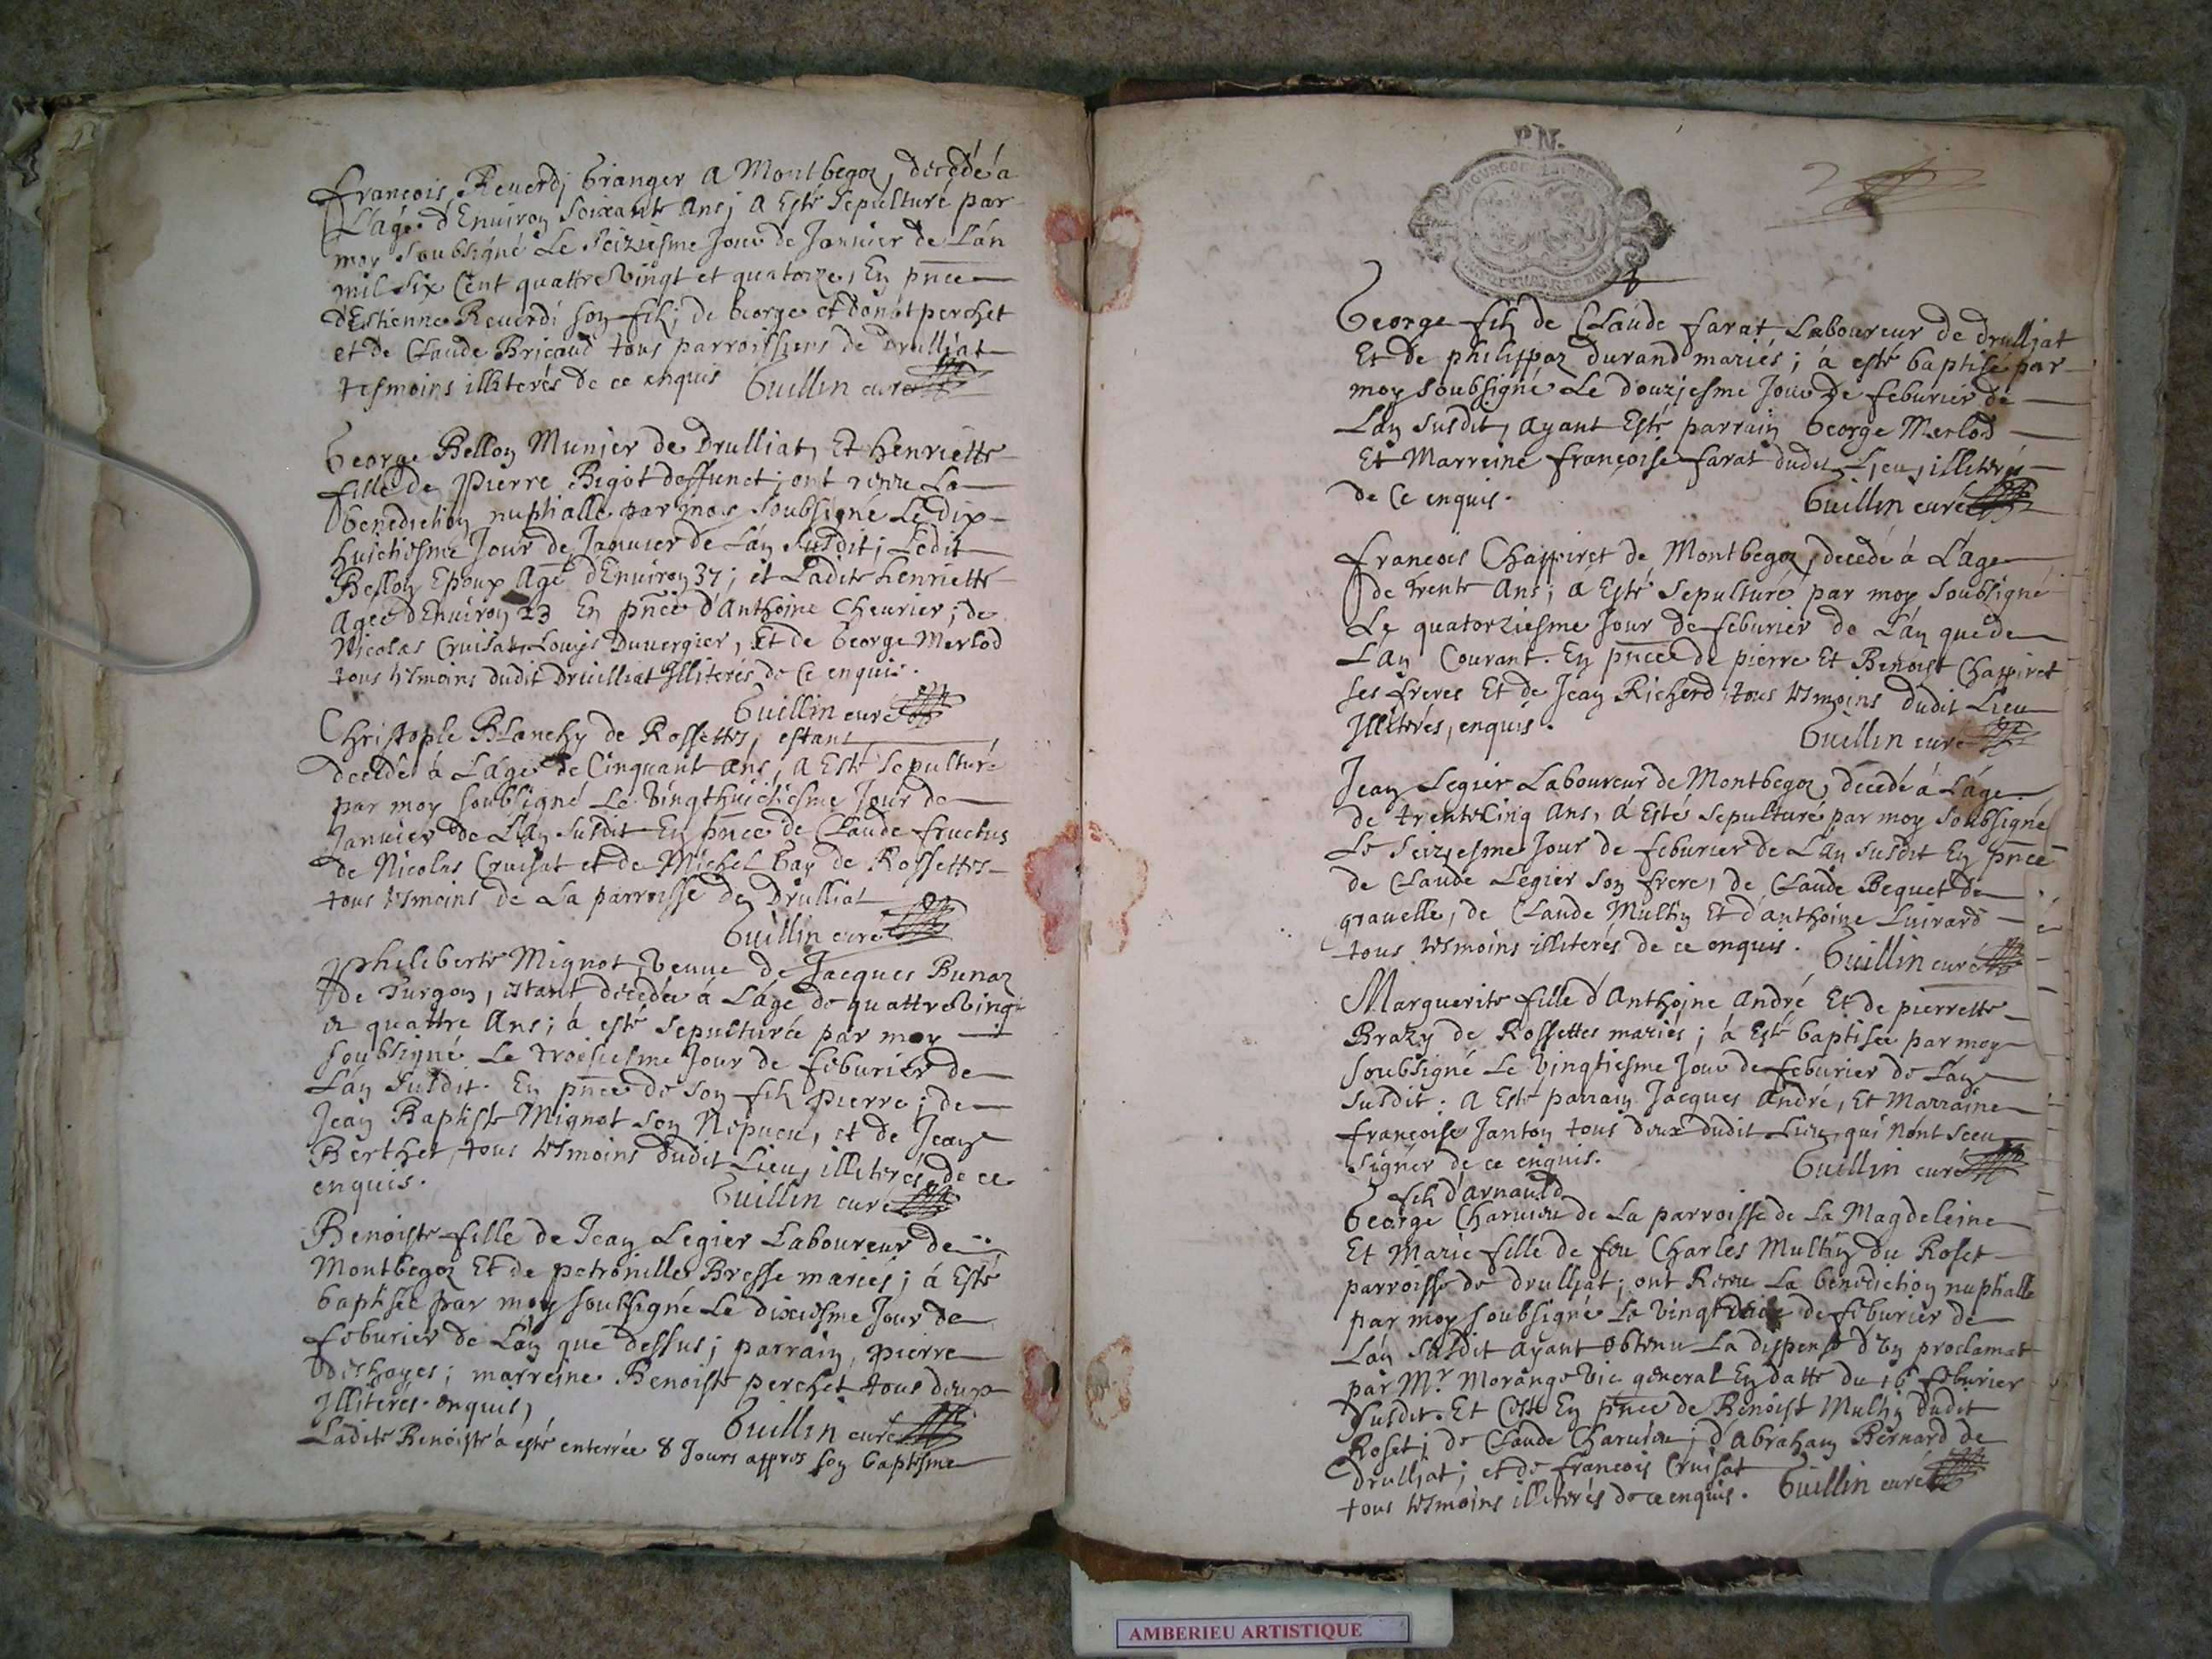 françois Reuerdj Granger a Montbegoz, décédé a
L'âge d'Enuiron Soixante Ans; a Esté Sepulturé par
moy Soubsigné Le Seiziesme Jour de Januier de L'án
mil Six Cent quattre Vingt et quatorze, En pñce
d'Estienne Reuerdi son fils; de George et donát perchet
et de Claude Bricaud tous parroissiens de Drulliat
tesmoins illiterés de ce enquis Guillin curé
George Bellon Munier de Drulliat, Et henriette
fille de Pierre Bigot deffunct; ont receu La
benediction nuptialle par moy Soubsigné Le dix-
huictiesme Jour de Januier de L'án Susdit; Ledit
Bellon Epoux Agé d'Enuiron 37; et Ladite henriette
Agée d'Enuiron 23 En pñce d'Anthoine Cheurier; de
Nicolas Cruisat, Louys Duuergier, Et de George Merlod
tous tesmoins dudit Druilliat Illiterés de Ce enquis.
Guillin curé
Christople Blanchy de Rossettes, estant
decedé à L'áge de Cinquant ans, a Esté Sepulturé
par moy soubsigné Le Vingthuictiesme Jour de
Januier de L'án Susdit En pñce de Claude fructus
de Nicolas Cruisat et de Michel Gay de Rossettes
tous tesmoins de La parroisse de Drulliat
Guillin curé
Phileberte Mignot, Veuue de Jacques Bunaz
de Turgon, estant décédée á L'áge de quattre Vingt
et quattre Ans; á esté Sepulturée par moy
soubsigné Le troisiesme Jour de feburier de
L'án Susdit. En pñce de son fils Pierre; de
Jean Baptiste Mignot son Nepueu, et de Jean
Berthet, tous tesmoins dudit Lieu, illiterés de ce
enquis.
Guillin curé
Benoiste fille de Jean Legier Laboureur de
Montbegoz Et de petronille Bresse mariés; á Esté
baptisée par moy soubsigné Le dixiesme Jour de
feburier de L'án que dessus; parrain, pierre
deshayes; marreine Benoiste perchet tous deux
Illiterés enquis,
Guillin curé
Ladite Benoiste á esté enterrée 8 Jours appres son baptesme
P.N.
George fils de Claude farat Laboureur de drulliat
Et de philippaz durand mariés; á esté baptisé par
moy soubsigné Le douziesme Jour de feburier de
L'án Susdit, ayant Esté parrain George Merlod
Et Marreine françoise farat dudit Lieu, illiterés
de Ce enquis.
Guillin curé
françois Chappiret de Montbegoz, decedé à L'áge
de trente Ans; a Esté Sepulturé par moy soubsigné
Le quatorziesme Jour de feburier de L'án que de
L'án Courant. En pñce de pierre Et Benoist Chappiret
ses freres Et de Jean Richerd, tous tesmoins dudit Lieu
Illiterés, enquis.
Guillin curé
Jean Legier Laboureur de Montbegoz, décédé á L'áge
de trente Cinq Ans, á Esté Sepulturé par moy Soubsigné
Le Seiziesme Jour de feburier de L'án Susdit En pñce
de Claude Legier son frere, de Claude Bequet de
grauelle, de Claude Multin Et d'anthoine Luirard
tous tesmoins illiterés de ce enquis. Guillin curé
Marguerite fille d'Anthojne André Et de pierrette
Brazy de Rossettes mariés; á Esté baptisée par moy
soubsigné Le Vingtiesme Jour de feburier de L'án
Susdit; A Esté parrain Jacques André, Et Marraine
françoise Janton tous deux dudit Lieu, qui N'ont Sceu
Signer de ce enquis.
Guillin curé
fils d'Arnauld
George Charuieu de La parroisse de La Magdeleine
Et Marie fille de feu Charles Multin du Roset
parroisse de drulliat; ont Receu La benediction nuptialle
par moy soubsigné Le Vingt de feburier de
L'án Susdit ayant obtenu La dispense d'un proclamat
par Mr Morange Vic general En datte du 16 feburier
Susdit. Et Ceste En pñce de Benoist Multin dudit
Roset; de Claude Charuieu; d'Abraham Bernard de
Drulliat; et de françois Cruisat
tous tesmoins illiterés de ce enquis. Guillin curé
AMBERIEU ARTISTIQUE